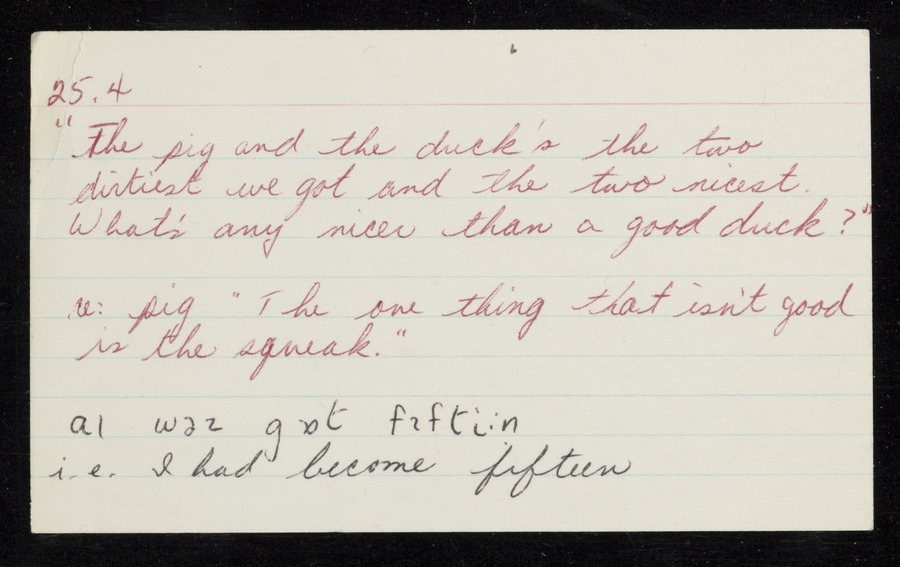 25.4
"The pig and the duck's the two
dirtiest we got and the two nicest.
What's any nicer than a good duck?"
re: pig "The one thing that isn't good
is the squeak."
aı wəz gɔt fɪftiːn
i.e. I had become fifteen